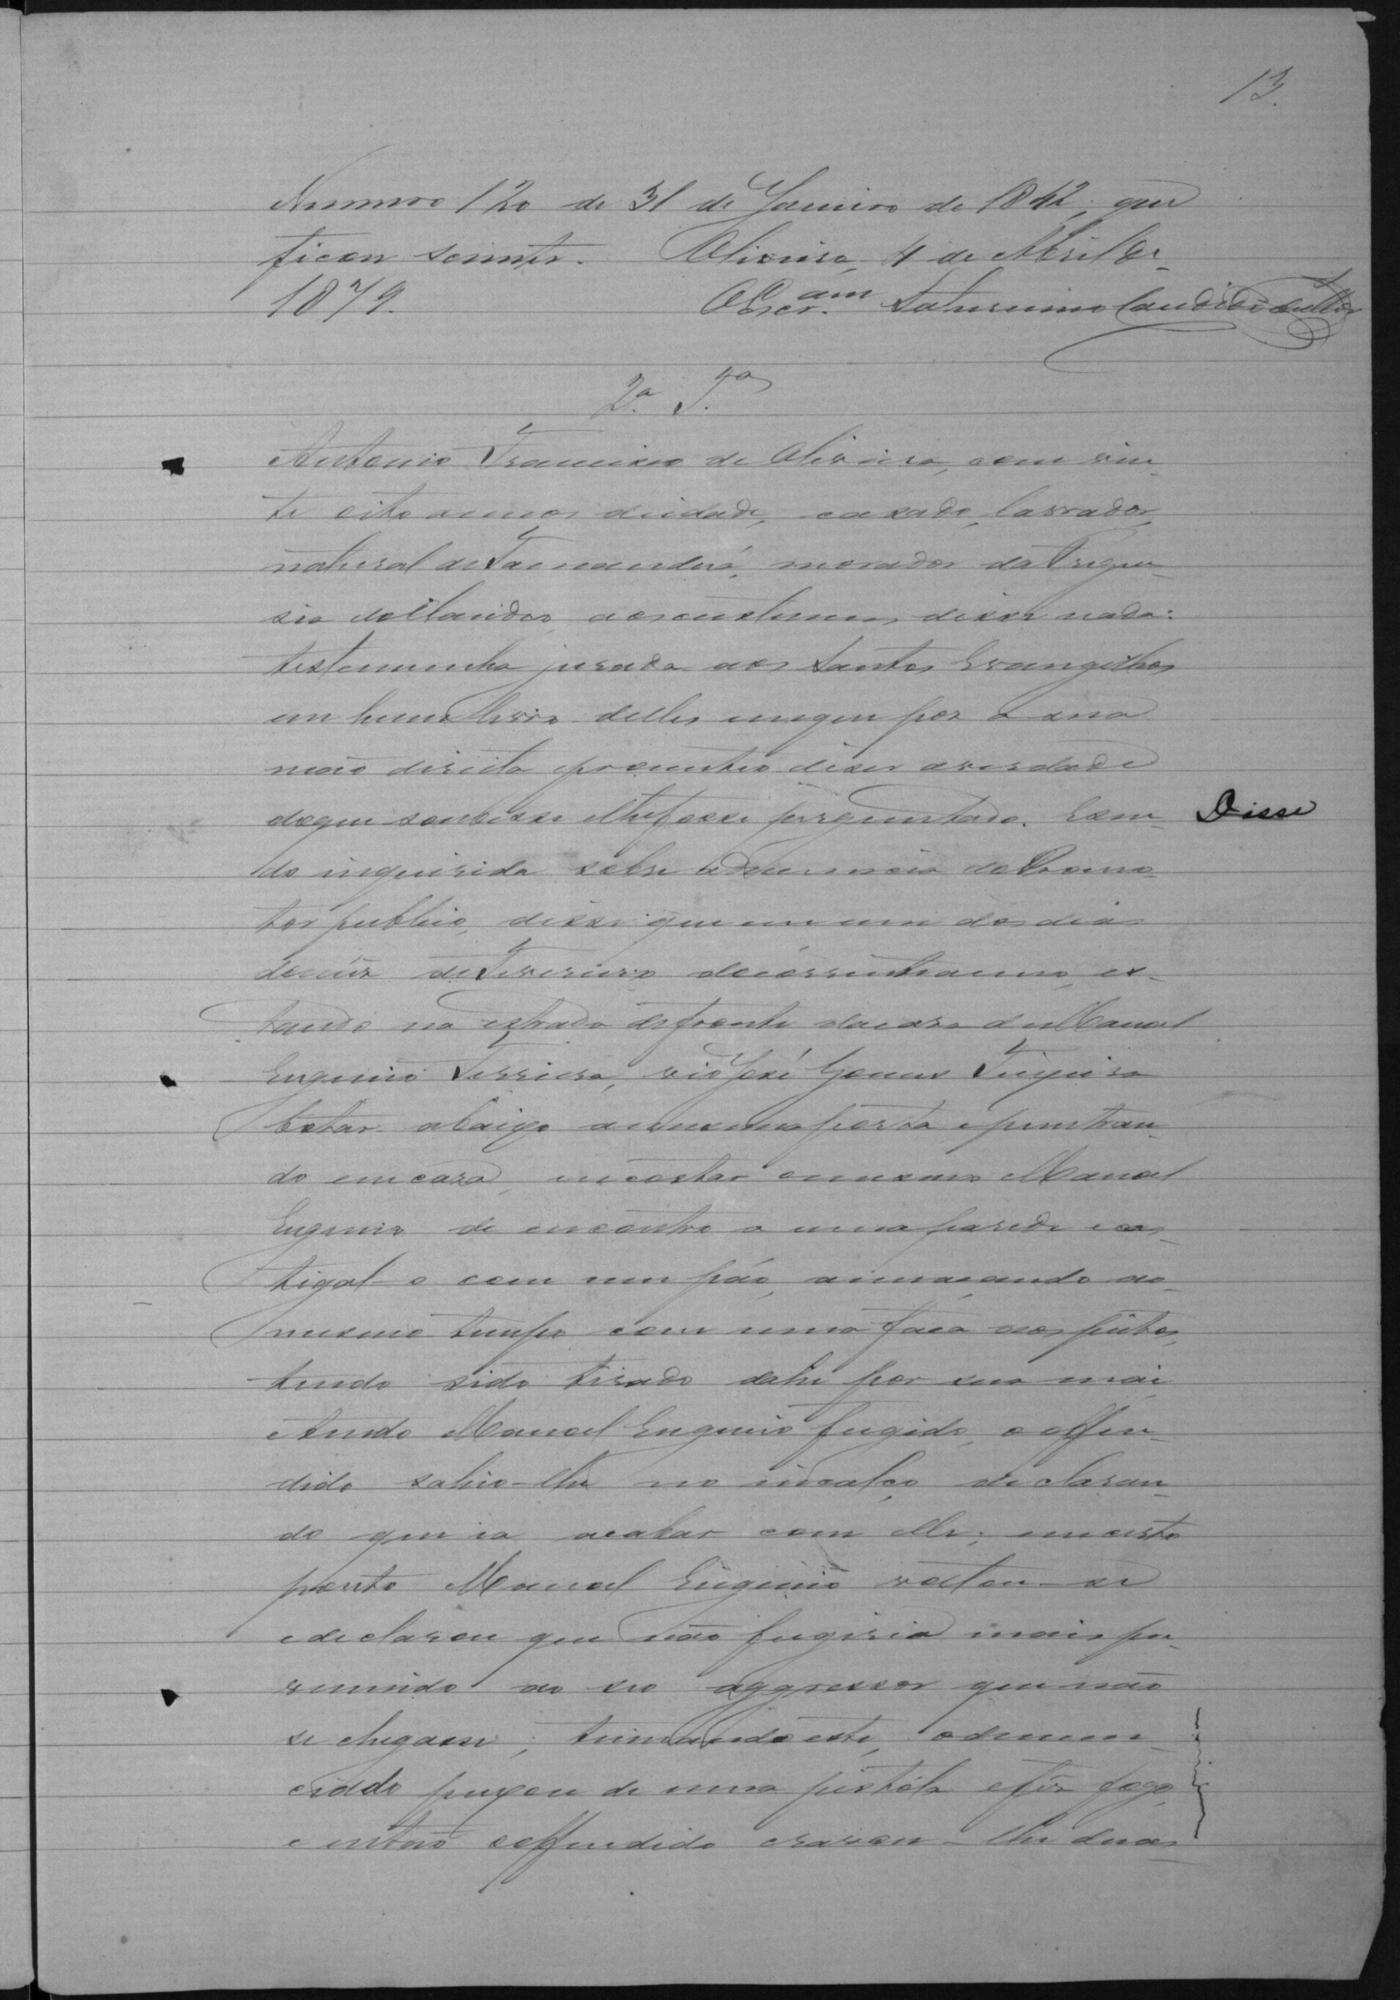 13.
Numero 120 de 31 de Janeiro de 1842; que
ficou sciente. Oliveira, 4 de Abril de
1879. O Escr.am Saturnino Candido
2.a T.a
Antonio Francisco de Oliveira, com vin-
te oito annos deidade, casado, lavrador,
natural de Tamanduá, morador da Fregue-
sia do Claudio, aos custumes disse nada:
testemunha jurada aos Santos Evangelhos
em hum livro delles em que pos a sua
mão direita prometteo dizer averdade
do que soubesse elhefosse perguntado. Esen- Disse
do inquirida sobre a denuncia do Promo-
tor publico, disse que em um dos dias
do mez de Fevereiro do corrente anno, es-
tando na estrada defronte da casa de Manoel
Eugenio Ferreira, vio José Gomes
botar abaixo a mesma porta epenetran-
do em casa, encostar o mesmo Manoel
Eugenio de encontro a uma parede e cas-
tigal-o com um páo, ameaçando ao
mesmo tempo com uma faca aos peitos,
tendo sido tirado dahi por sua mãi
etendo Manoel Eugenio fugido, o offen-
dido sahio-lhe no encalço declaran-
do que ia acabar com elle; em certo
ponto Manoel Eugenio voltou-se
e declarou que não fugiria mais pre-
venindo ao seo aggressor que não
se chegasse; teimando este, o denun-
ciado puxou de uma pistola efez fogo,
e então o offendido cravou-lhe duas